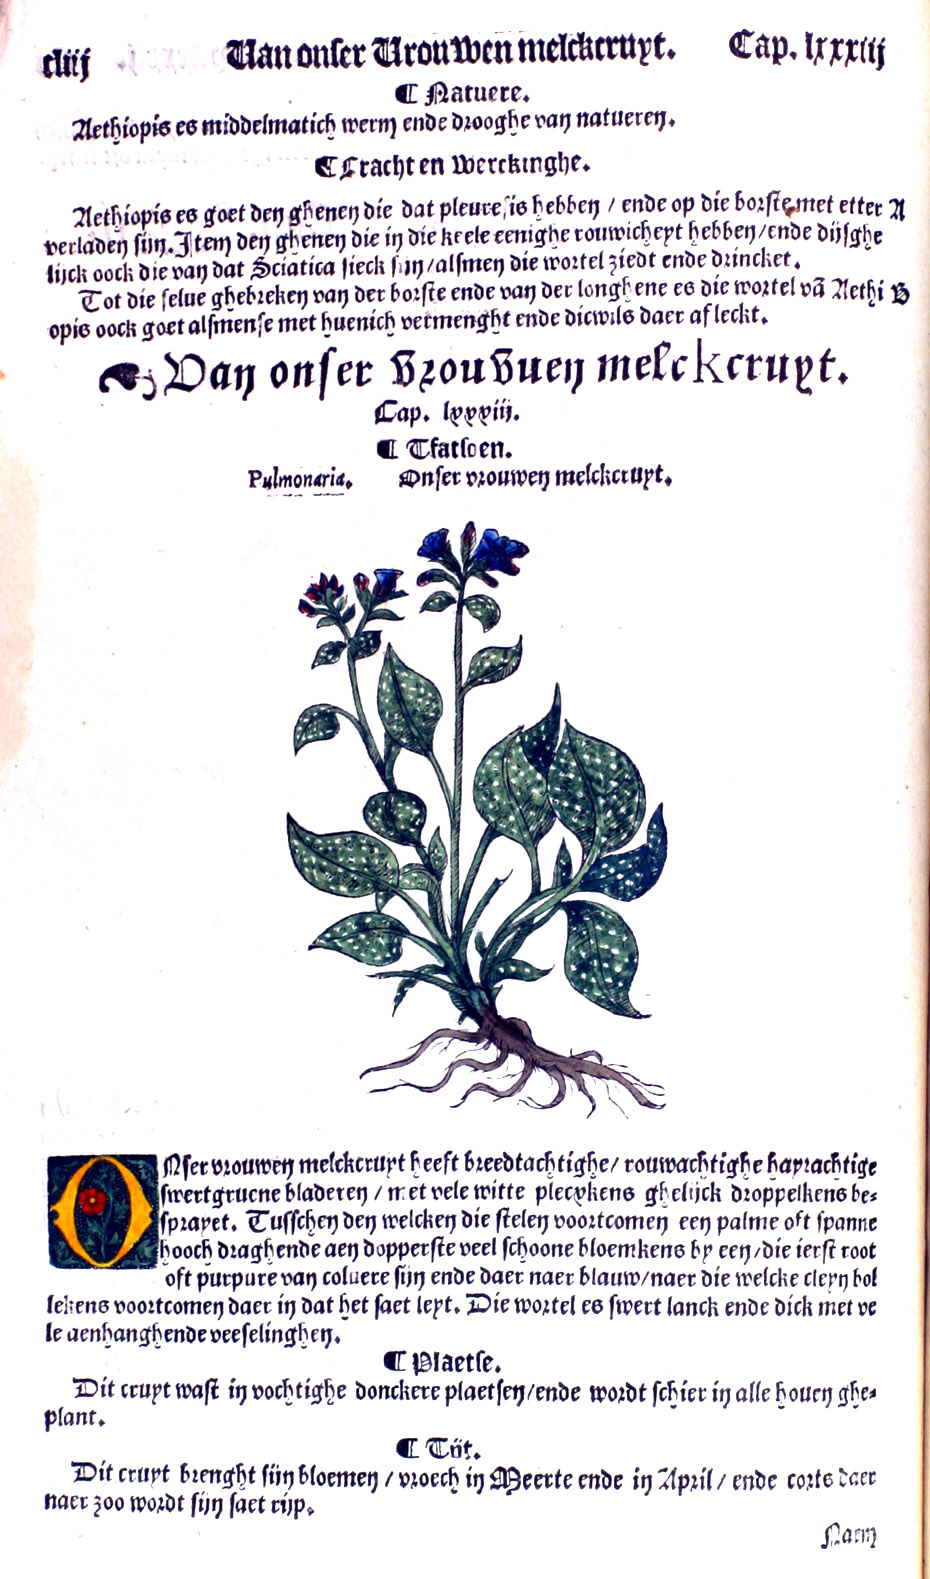 cliij Van onser Vrouwen melckcruyt. Cap. lxxxiij
¶ Natuere.
Aethiopis es middelmatich werm ende drooghe van natueren.
¶ Cracht en Werckinghe.
Aethiopis es goet den ghenen die dat pleuresis hebben / ende op die borste met etter A
verladen sijn. Item den ghenen die in die keele eenighe rouwicheyt hebben / ende dijsghe
lijck oock die van dat Sciatica sieck sijn / alsmen die wortel ziedt ende drincket.
Tot die selue ghebreken van der borste ende van der longhene es die wortel vā Aethi B
opis oock goet alsmense met huenich vermenght ende dicwils daer af leckt.
Van onser vrouwen melckcruyt.
Cap. lxxxiij.
¶ Tfatsoen.
Pulmonaria. Onser vrouwen melckcruyt.
ONser vrouwen melckcruyt heeft breedtachtighe / rouwachtighe hayrachtige
swertgruene bladeren / met vele witte pleckens ghelijck droppelkens be-
sprayet. Tusschen den welcken die stelen voortcomen een palme oft spanne
hooch draghende aen dopperste veel schoone bloemkens by een / die ierst root
oft purpure van coluere sijn ende daer naer blauw / naer die welcke cleyn bol
lekens voortcomen daer in dat het saet leyt. Die wortel es swert lanck ende dick met ve
le aenhanghende veeselinghen.
¶ Plaetse.
Dit cruyt wast in vochtighe donckere plaetsen / ende wordt schier in alle houen ghe-
plant.
¶ Tijt.
Dit cruyt brenght sijn bloemen / vroech in Meerte ende in April / ende corts daer
naer zoo wordt sijn saet rijp.
Naem